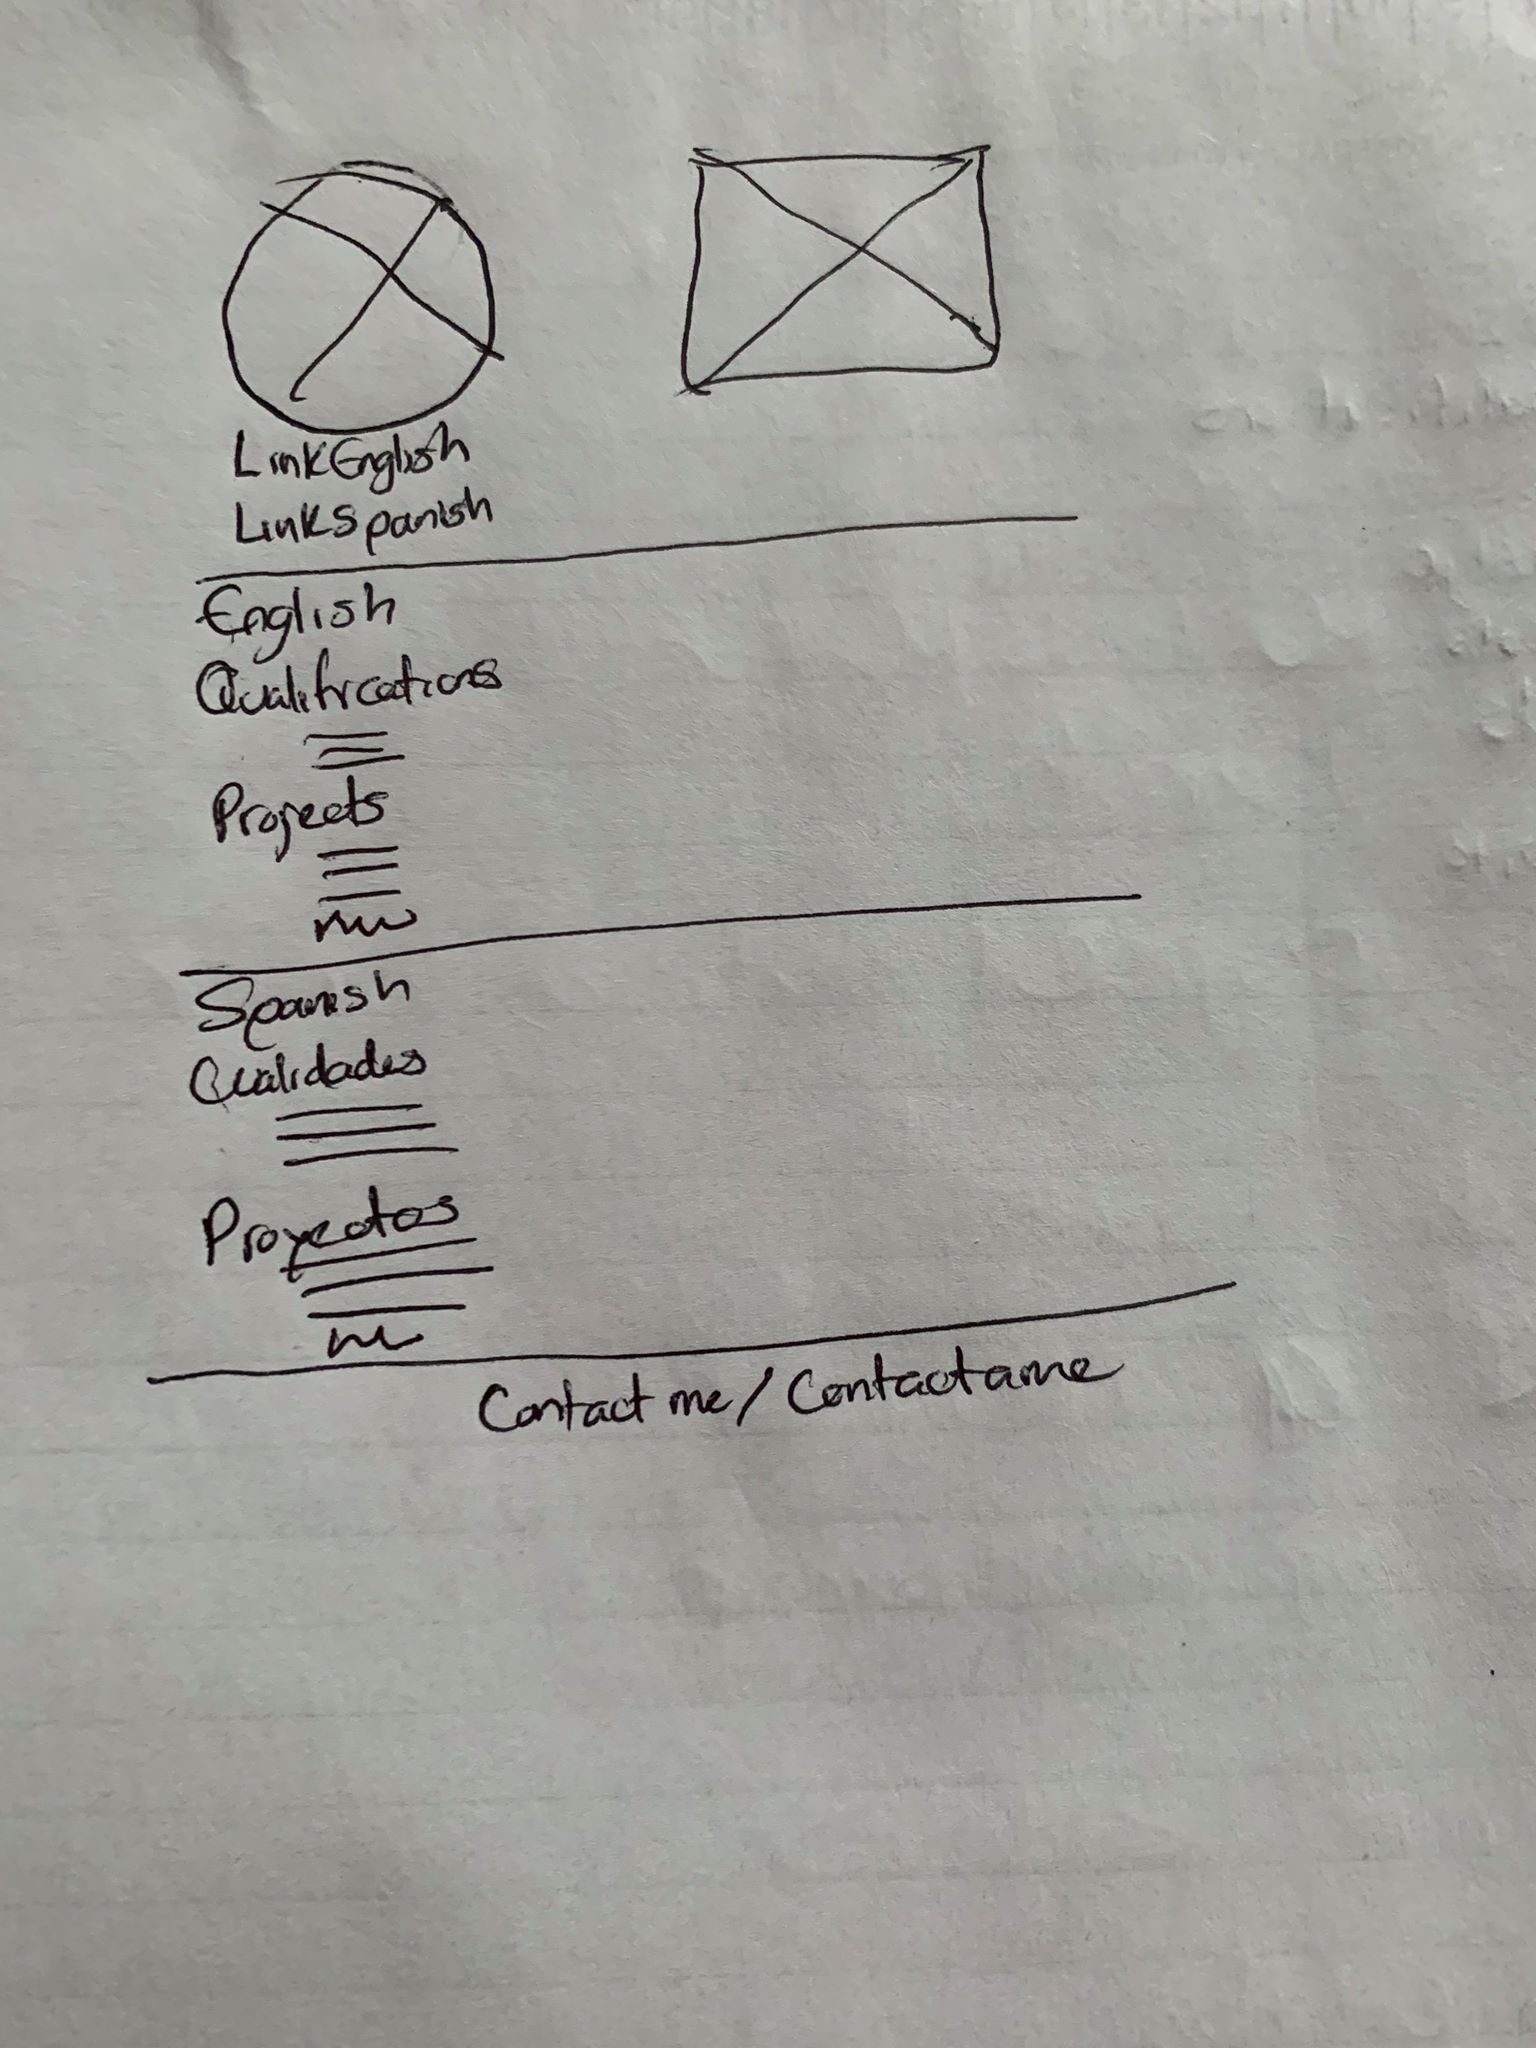 Link English
Link Spanish
English
Qualifications
Projects
Spanish
Cualidades
Proyectos
Contact me / Contactame